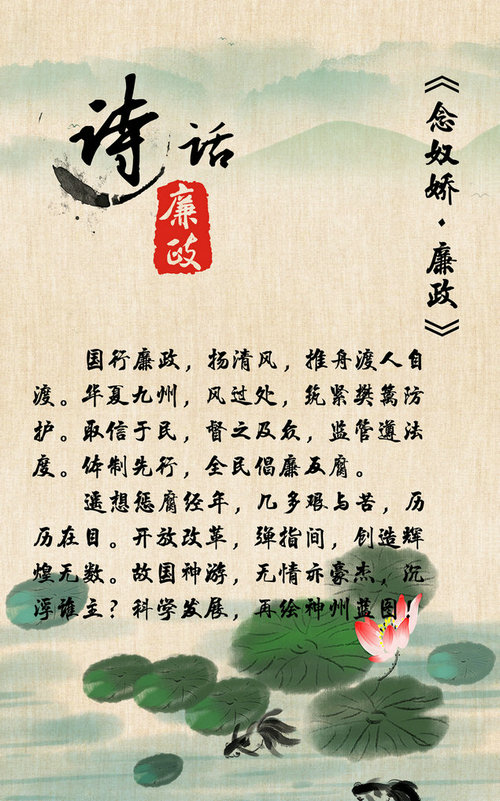 诗话
廉政
《念奴娇·廉政》
国行廉政，扬清风，推舟渡人自
渡。华夏九州，风过处，筑紧樊篱防
护。取信于民，督之及众，监管遵法
度。体制先行，全民倡廉反腐。
遥想惩腐经年，几多艰与苦，历
历在目。开放改革，弹指间，创造辉
煌无数。故国神游，无情亦豪杰，沉
浮谁主？科学发展，再绘神州蓝图